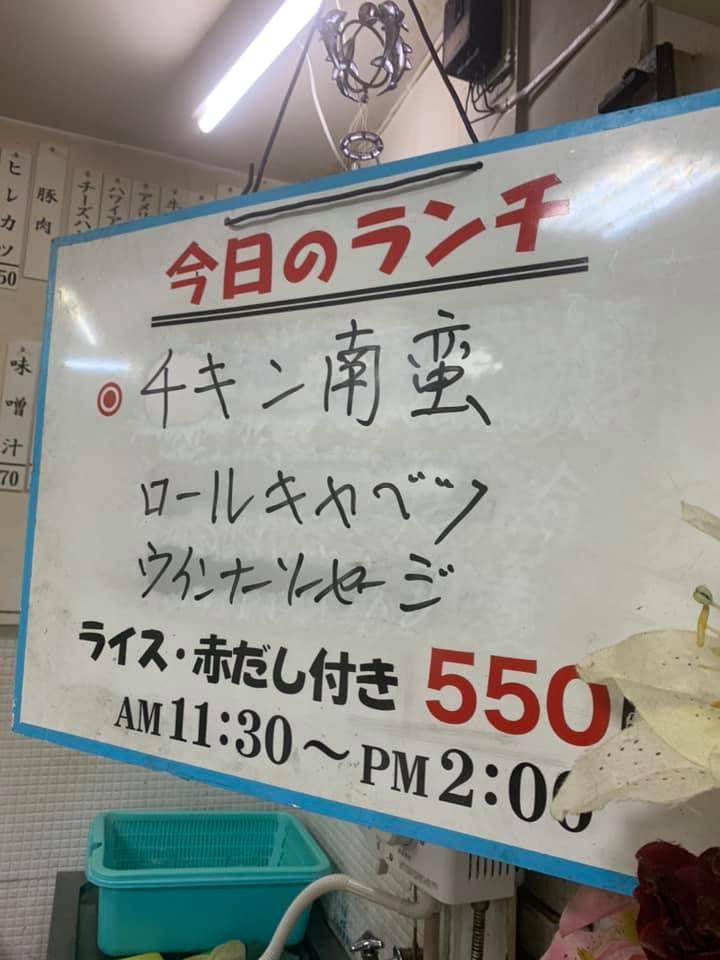 今日のランチ
チキン南蛮
ロールキャベツ
ウインナーソーセージ
ライス・赤だし付き 550
AM 11:30 〜 PM 2:00
ヒレカツ
50
豚肉
チーズハ
ハワイア
アメリ
牛
味噌汁
70